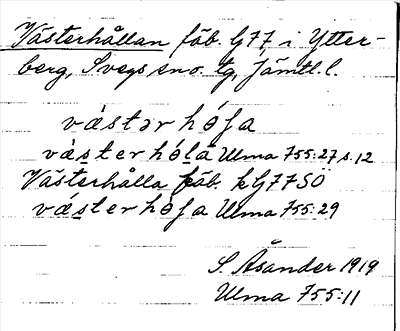 Västerhållan fäb. G77 i Ytter-
berg, Svegs sno. tg, Jämtl. l.
västər hóʃa
västerhólã Ulma 755:27 s. 12
Västerhålla fäb. kG77SÖ
västerhóʃa Ulma 755:29
S. Åsander 1919
Ulma 755:11